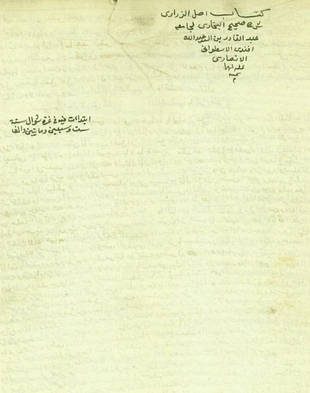 كتاب اصل الزراري
شرح صحيح البخاري لجامعه
عبد القادر بن عبدالله
افندي الاسطواني
الانصاري
عفي عنهما
ابتدات فيه في غرة شوال سنة
ست وسبعين ومايتين والف